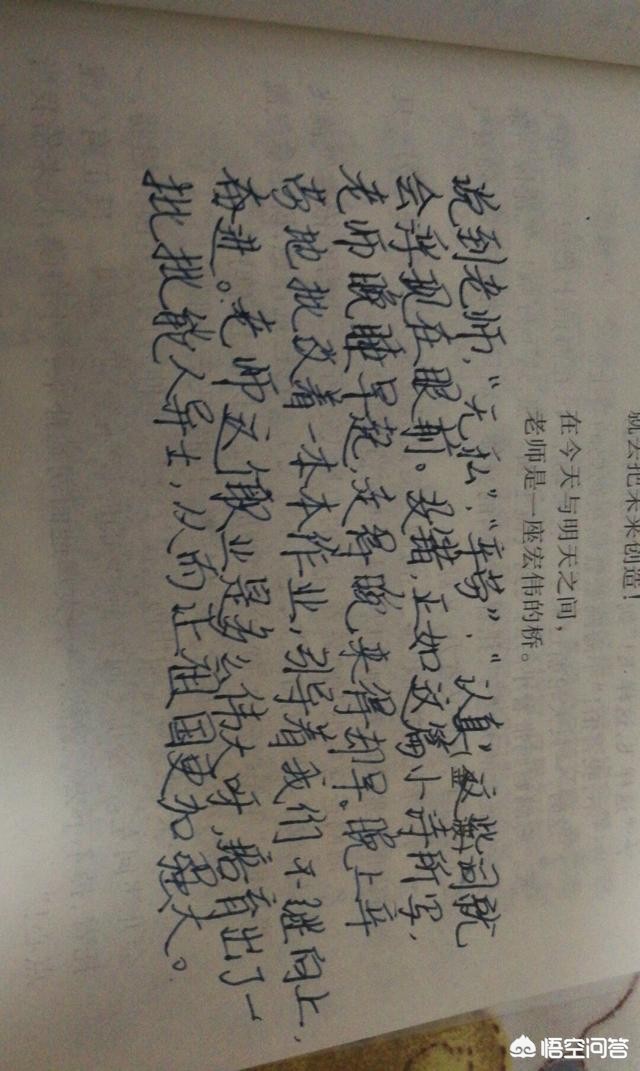 就去把未来创造!
在今天与明天之间,
老师是一座宏伟的桥。
说到老师，“无私”，“辛劳”，“认真”这些词就
会浮现在眼前。没错，正如这篇小诗所写，
老师晚睡早起，走得晚，来得却早。晚上辛
劳地批改着一本本作业，引导着我们不继向上，
奋进。老师这业是多么伟大呀，培育出了一
批批能人异士，从而让祖国更加强大。
悟空问答